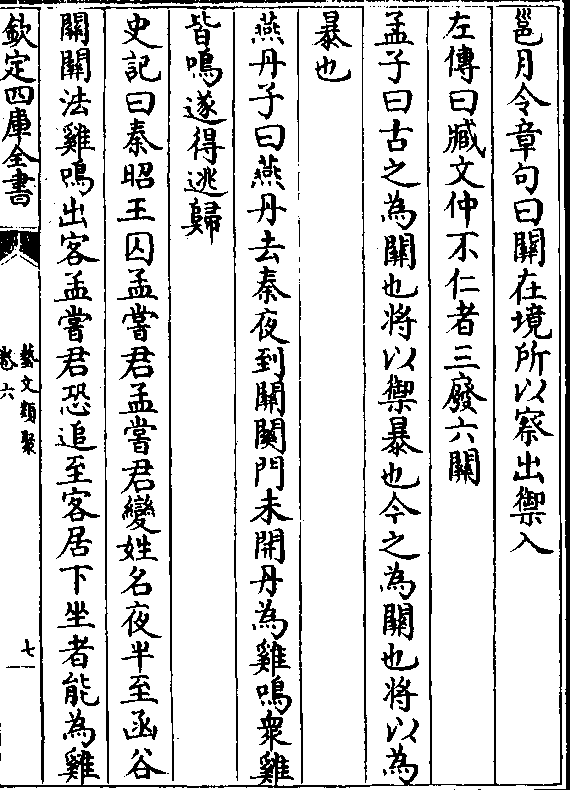 邕月令章句曰關在境所以察出禦入
左傳曰臧文仲不仁者三廢六關
孟子曰古之為關也將以禦暴也今之為關也將以為
暴也
燕丹子曰燕丹去秦夜到關關門未開丹為雞鳴衆雞
皆鳴遂得逃歸
史記曰秦昭王囚孟嘗君孟嘗君變姓名夜半至函谷
關關法雞鳴出客孟嘗君恐追至客居下坐者能為雞
欽定四庫全書
藝文類聚
卷六
七